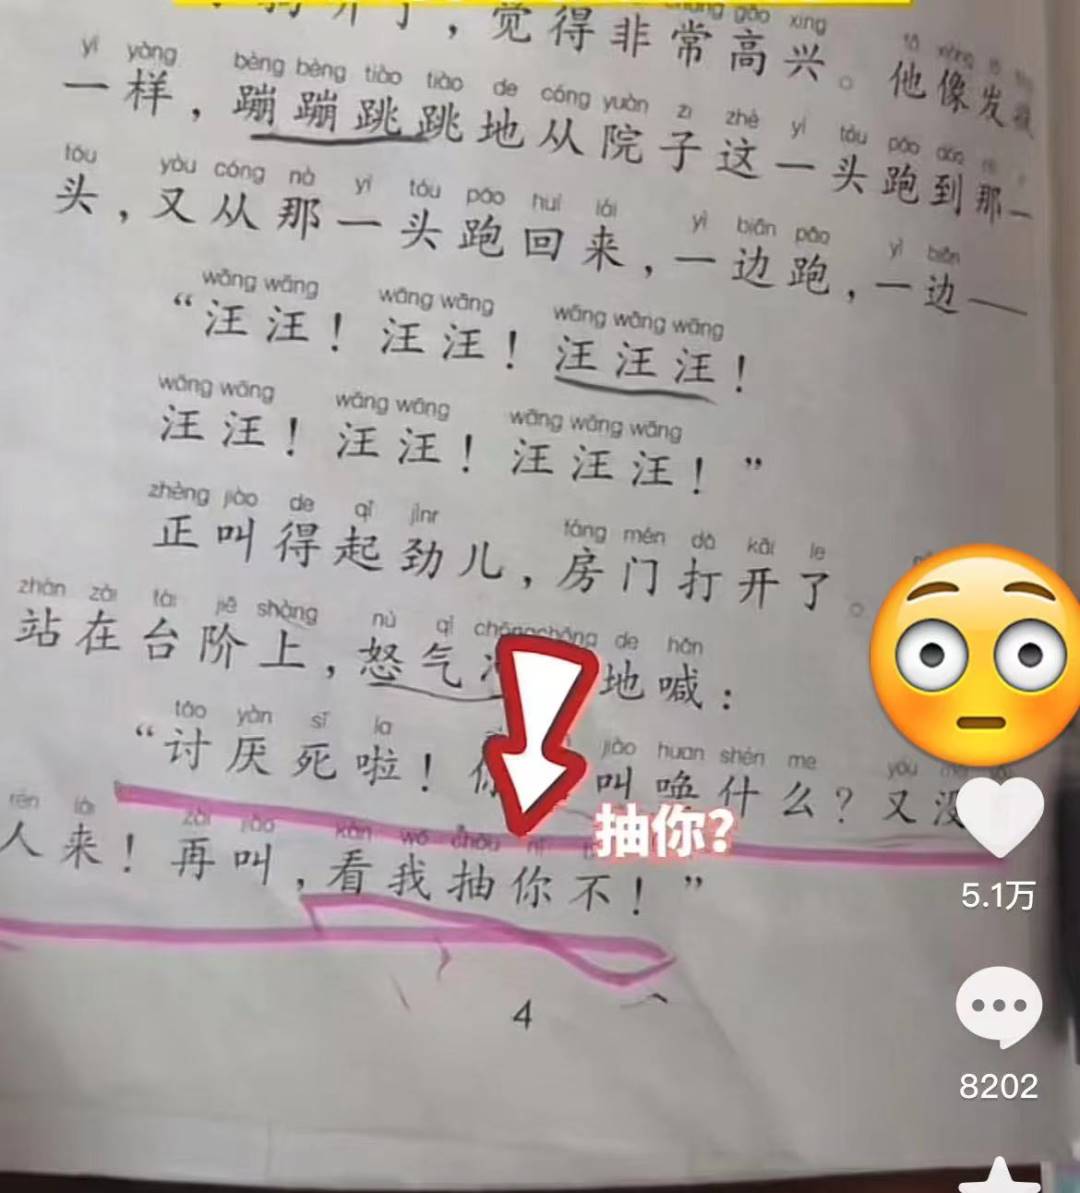 ，觉得非常高兴。他像发
yì yàng bèng bèng tiào tiào de cóng yuàn zi zhè yì tóu pǎo dào
一样，蹦蹦跳跳地从院子这一头跑到那一
tóu yòu cóng nà yì tóu pǎo huí lái yì biān pǎo yì biān
头，又从那一头跑回来，一边跑，一边——
wāng wāng wāng wāng wāng wāng wāng
“汪汪！汪汪！汪汪汪！
wāng wāng wāng wāng wāng wāng wāng
汪汪！汪汪！汪汪汪！”
zhèng jiào de qǐ jìnr fáng mén dǎ kāi le
正叫得起劲儿，房门打开了。
zhàn zài tái jiē shàng nù qì chōngchōng de hǎn
站在台阶上，怒气地喊：
tǎo yàn sǐ la jiào huan shén me yòu
“讨厌死啦！你叫唤什么？又没
抽你？
rén lái zài jiào kàn wǒ chōu nǐ
人来！再叫，看我抽你不！”
4
5.1万
8202